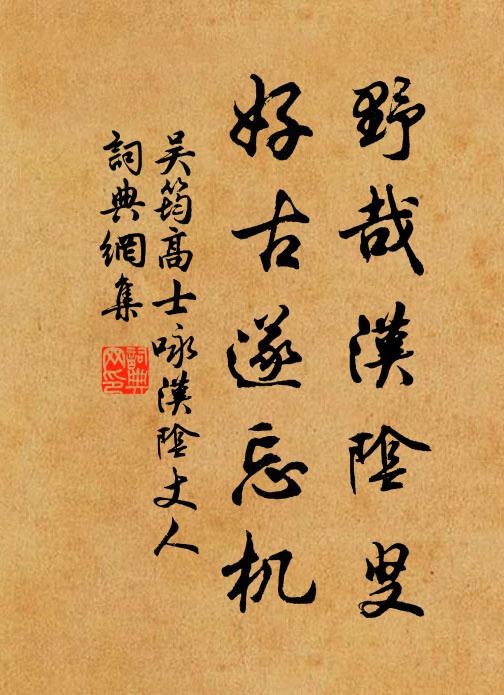 野哉漢陰叟
好古遂忘机
吴筠高士咏漢陰丈人
詞典網集
詞典網印